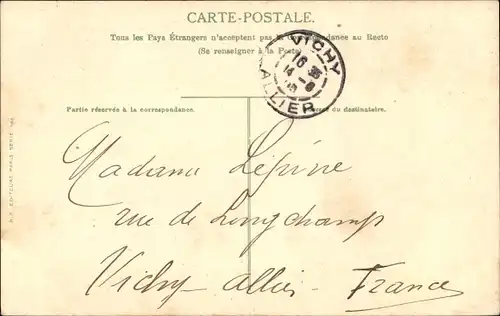 CARTE-POSTALE.
Tous les Pays Étrangers n'acceptent pas la correspondance au Recto
(Se renseigner à la Poste)
VICHY
16 35
14 -8
ALLIER
Partie réservée à la correspondance.
du destinataire.
Madame Lépine
rue de Longchamp
Vichy - Allier - France